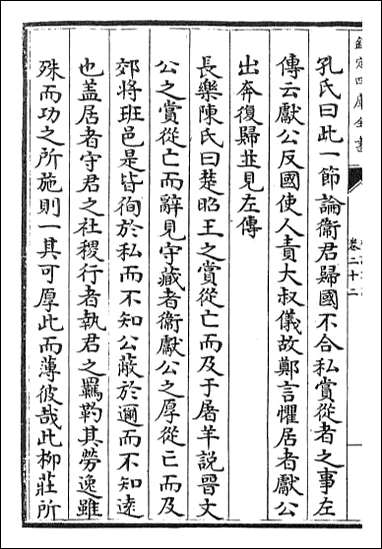 欽定四庫全書
卷二十二
孔氏曰此一節論衞君歸國不合私賞從者之事左
傳云獻公反國使人責大叔儀故鄭言懼居者獻公
出奔復歸並見左傳
長樂陳氏曰楚昭王之賞從亡而及于屠羊説晉文
公之賞從亡而辭見守藏者衞獻公之厚從亡而及
郊將班邑是皆徇於私而不知公蔽於邇而不知逺
也盖居者守君之社稷行者執君之羈靮其勞逸雖
殊而功之所施則一其可厚此而薄彼哉此柳莊所